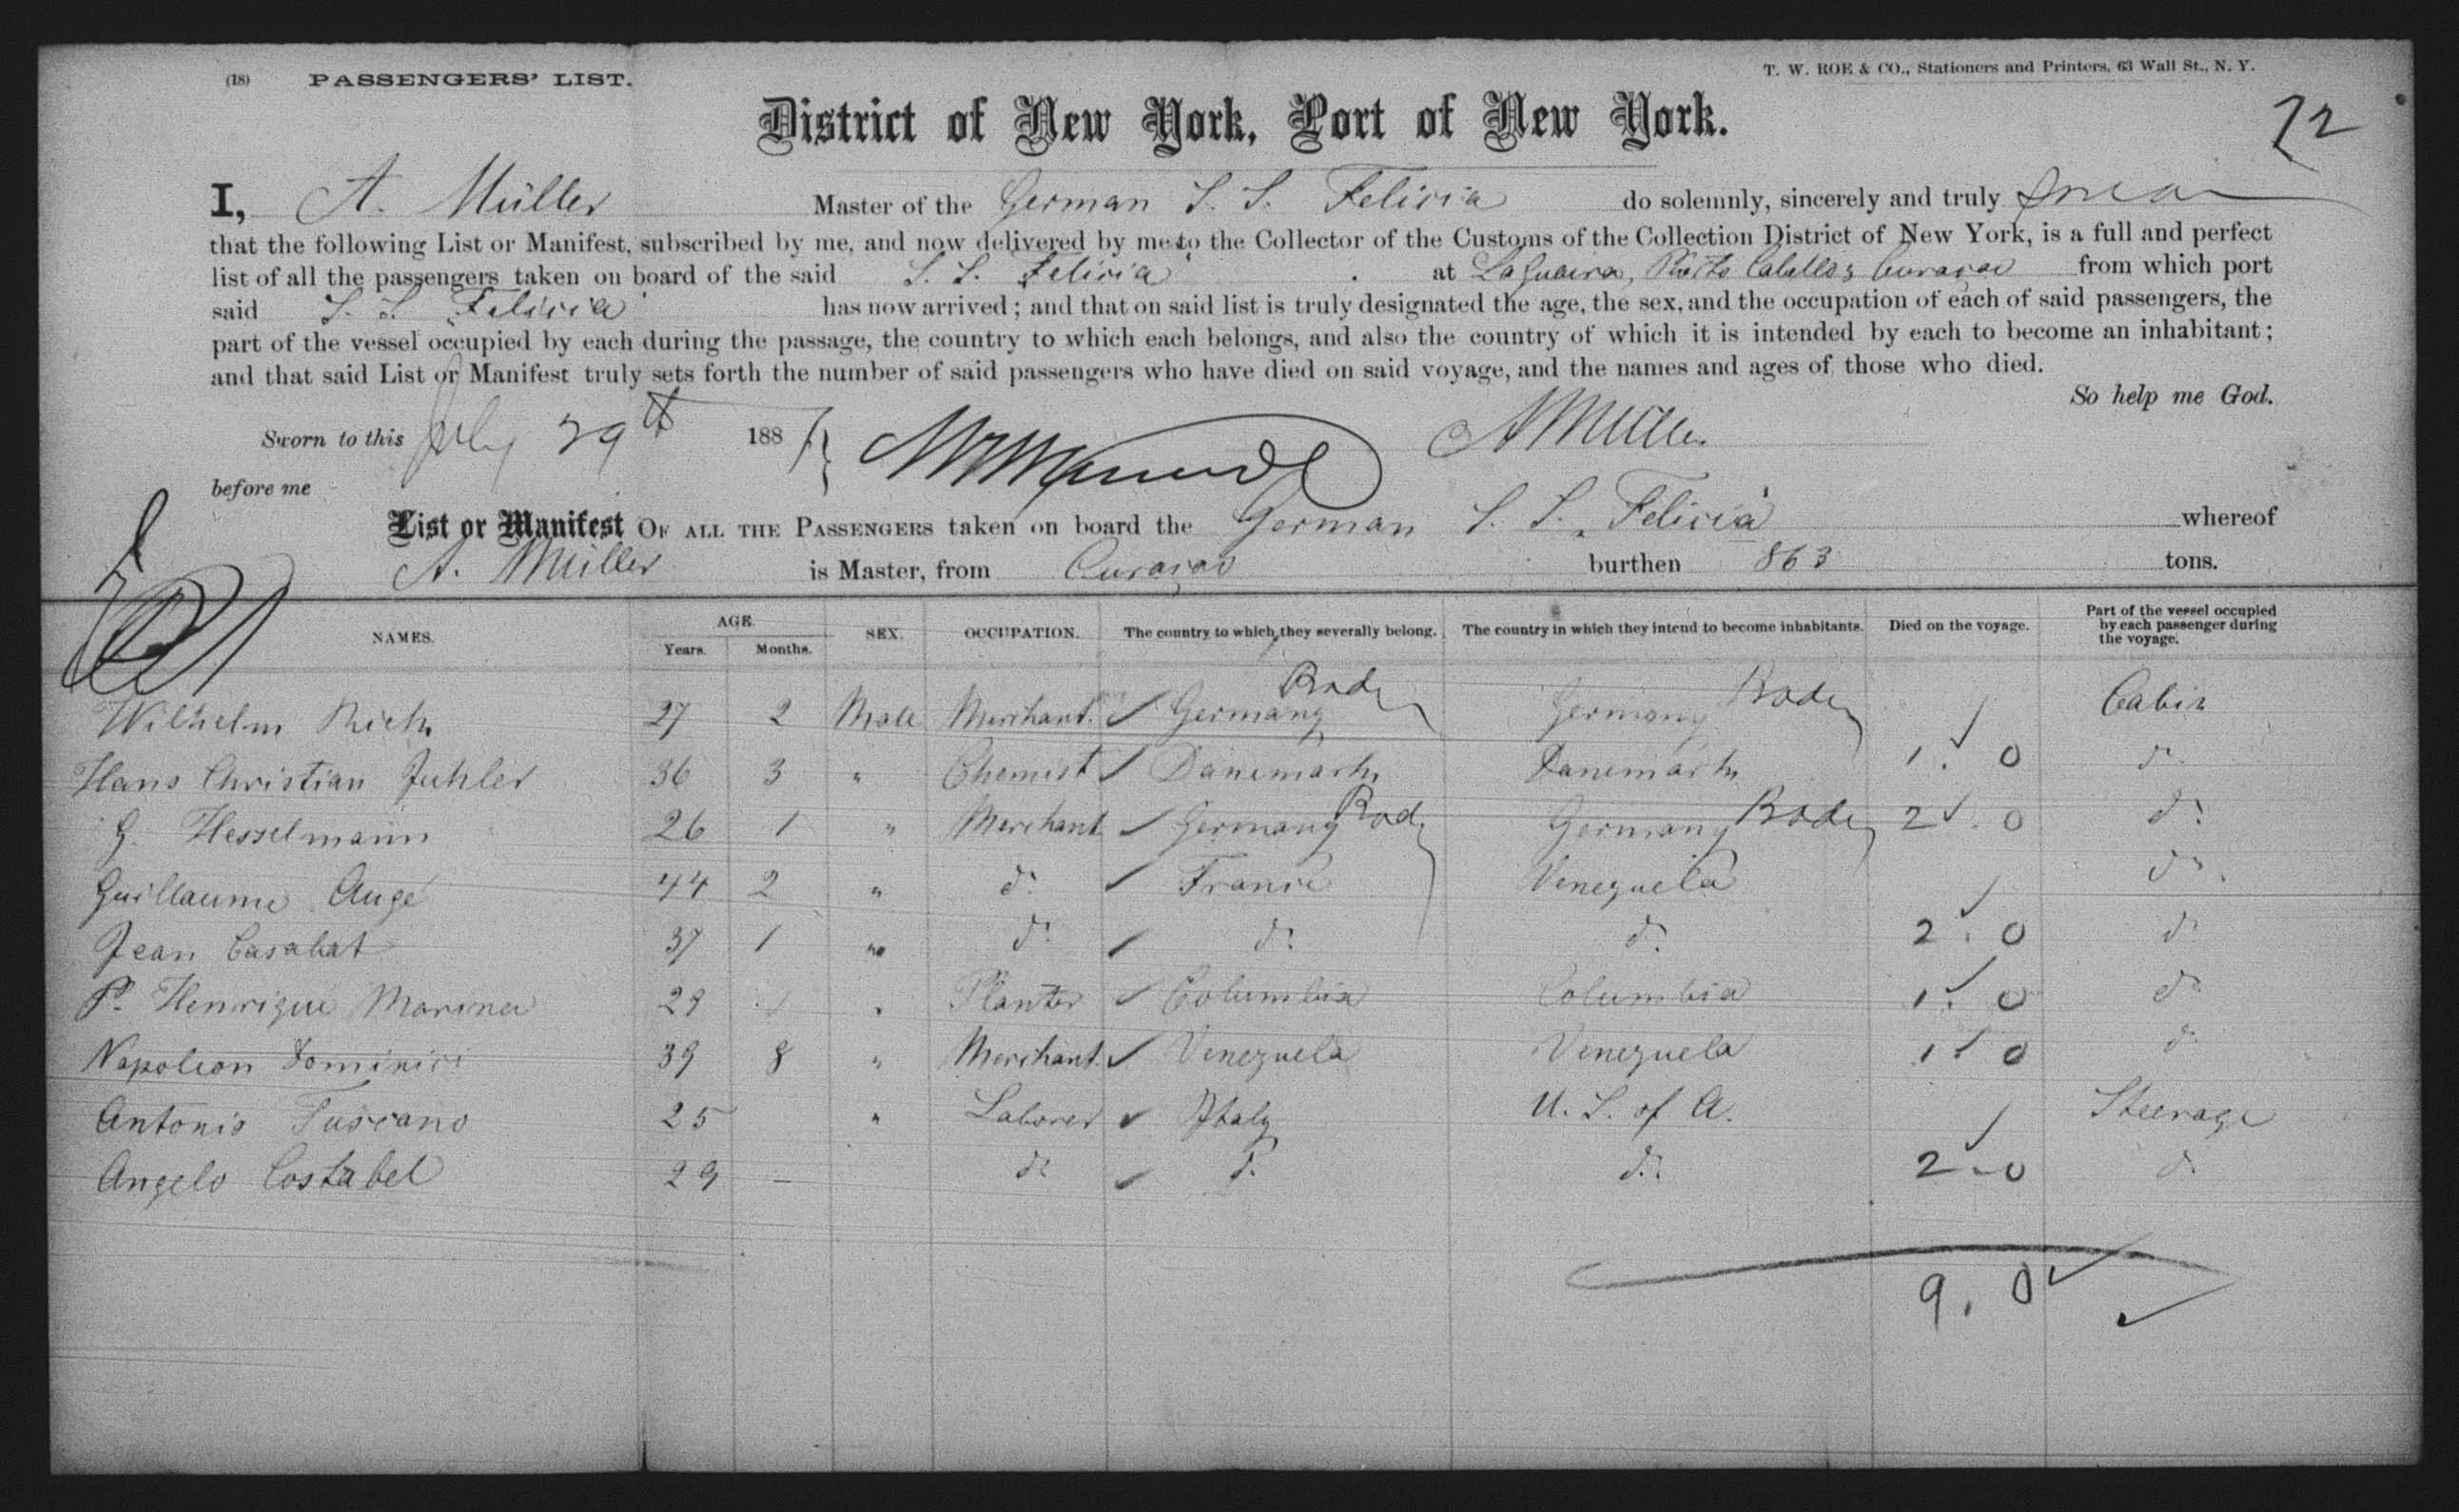 (18) PASSENGERS' LIST.
T. W. ROE & CO., Stationers and Printers, 63 Wall St., N. Y.
District of New York, Port of New York.
72
I, A. Müller Master of the German S. S. Felicia do solemnly, sincerely and truly swear
that the following List or Manifest, subscribed by me, and now delivered by me to the Collector of the Customs of the Collection District of New York, is a full and perfect
list of all the passengers taken on board of the said S. S. Felicia at LaGuaira, Puerto Cabello & Curaçao from which port
said S. S. Felicia has now arrived; and that on said list is truly designated the age, the sex, and the occupation of each of said passengers, the
part of the vessel occupied by each during the passage, the country to which each belongs, and also the country of which it is intended by each to become an inhabitant;
and that said List or Manifest truly sets forth the number of said passengers who have died on said voyage, and the names and ages of those who died.
So help me God.
Sworn to this July 29th 188 A Müller
before me
List or Manifest OF ALL THE PASSENGERS taken on board the German S. S. Felicia whereof
A. Müller is Master, from Curaçao burthen 863 tons.
NAMES. AGE. Years. Months. SEX. OCCUPATION. The country to which they severally belong. The country in which they intend to become inhabitants. Died on the voyage. Part of the vessel occupied by each passenger during the voyage.
Wilhelm 27 2 Male Merchant Germany Germany Cabin
Hans Christian Juhler 36 3 " Chemist Danemark Danemark 1. 0 do
G. Hesselmann 26 1 " Merchant Germany Germany 2. 0 do
Guillaume Augé 44 2 " do France Venezuela do
Jean Casabat 37 1 " do do do 2. 0 do
P. Henrique 29 " Planter Columbia Columbia 1. 0 do
Napoleon Dominici 39 8 " Merchant Venezuela Venezuela 1 0 do
Antonio Tuscano 25 " Laborer Italy U. S. of A. Steerage
Angelo Costabel 29 — do do do 2-0 do
9. 0